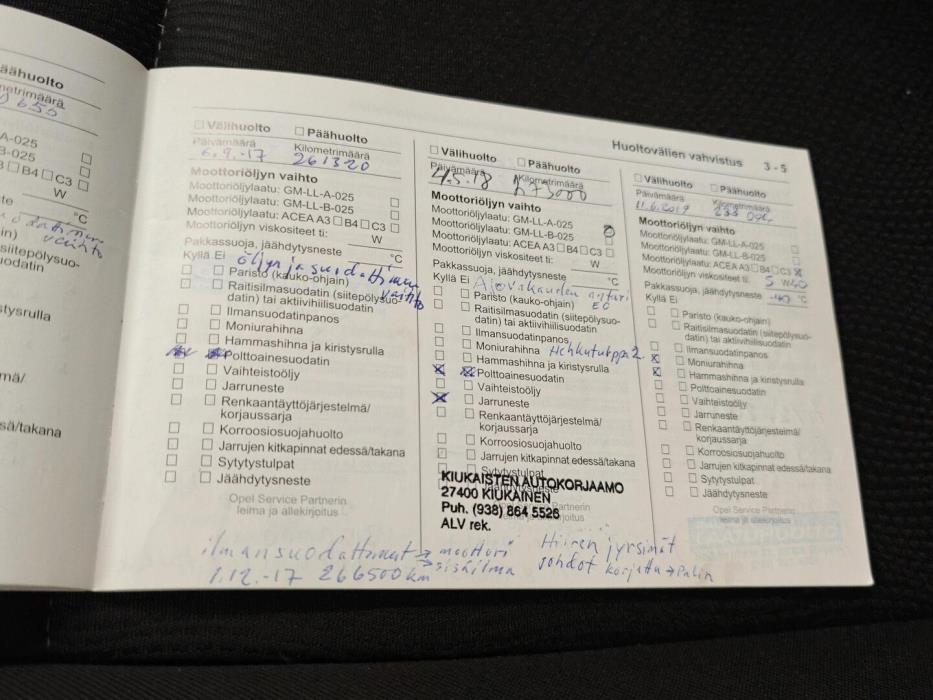 äähuolto
metrimäärä
650
A-025
B-025
B4 C3
W
°C
vaihto
siitepölysuo-
uodatin
styrsrulla
mä/
sä/takana
Huoltovälien vahvistus 3 - 5
Välihuolto Päähuolto
Päivämäärä Kilometrimäärä
6.9.-17 261320
Moottoriöljyn vaihto
Moottoriöljylaatu: GM-LL-A-025
Moottoriöljylaatu: GM-LL-B-025
Moottoriöljylaatu: ACEA A3 B4 C3
Moottoriöljyn viskositeet ti: W
Pakkassuoja, jäähdytysneste °C
Kyllä Ei öljyn ja suodattimen
vaihto
Paristo (kauko-ohjain)
Raitisilmasuodatin (siitepölysuo-
datin) tai aktiivihiilisuodatin
Ilmansuodatinpanos
Moniurahihna
Hammashihna ja kiristysrulla
Polttoainesuodatin
Vaihteistoöljy
Jarruneste
Renkaantäyttöjärjestelmä/
korjaussarja
Korroosiosuojahuolto
Jarrujen kitkapinnat edessä/takana
Sytytystulpat
Jäähdytysneste
Opel Service Partnerin
leima ja allekirjoitus
Välihuolto Päähuolto
Päivämäärä Kilometrimäärä
4.5.18 273000
Moottoriöljyn vaihto
Moottoriöljylaatu: GM-LL-A-025
Moottoriöljylaatu: GM-LL-B-025
Moottoriöljylaatu: ACEA A3 B4 C3
Moottoriöljyn viskositeet ti: W
Pakkassuoja, jäähdytysneste °C
Kyllä Ei Ajovakauden anturi
EO
Paristo (kauko-ohjain)
Raitisilmasuodatin (siitepölysuo-
datin) tai aktiivihiilisuodatin
Ilmansuodatinpanos
Moniurahihna Hehkutulppa 2
Hammashihna ja kiristysrulla
Polttoainesuodatin
Vaihteistoöljy
Jarruneste
Renkaantäyttöjärjestelmä/
korjaussarja
Korroosiosuojahuolto
Jarrujen kitkapinnat edessä/takana
Sytytystulpat
Jäähdytysneste
KIUKAISTEN AUTOKORJAAMO
27400 KIUKAINEN
Puh. (938) 864 5526
ALV rek.
Välihuolto Päähuolto
Päivämäärä Kilometrimäärä
11.6.2019
Moottoriöljyn vaihto
Moottoriöljylaatu: GM-LL-A-025
Moottoriöljylaatu: GM-LL-B-025
Moottoriöljylaatu: ACEA A3 B4 C3
Moottoriöljyn viskositeet ti: 5 W40
Pakkassuoja, jäähdytysneste -40 °C
Kyllä Ei
Paristo (kauko-ohjain)
Raitisilmasuodatin (siitepölysuo-
datin) tai aktiivihiilisuodatin
Ilmansuodatinpanos
Moniurahihna
Hammashihna ja kiristysrulla
Polttoainesuodatin
Vaihteistoöljy
Jarruneste
Renkaantäyttöjärjestelmä/
korjaussarja
Korroosiosuojahuolto
Jarrujen kitkapinnat edessä/takana
Sytytystulpat
Jäähdytysneste
Opel Service Partnerin
leima ja allekirjoitus
ilmansuodattimet → moottori
→ sisäilma
1.12.-17 266500 km
Hiiren jyrsimät
johdot korjattu →